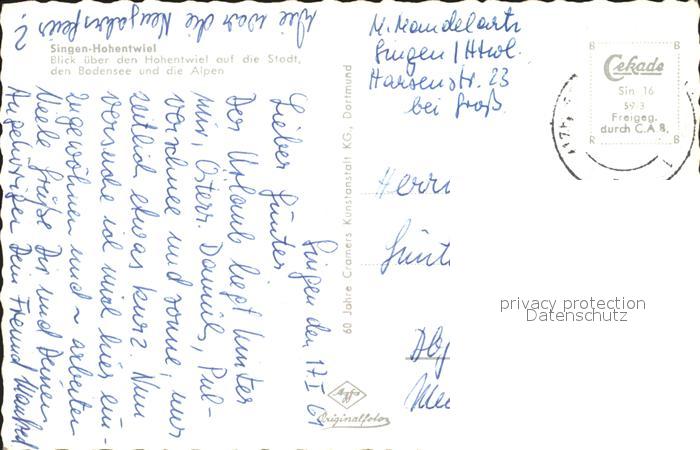 Wie war die Neujahrsfeier?
Singen-Hohentwiel
Blick über den Hohentwiel auf die Stadt,
den Bodensee und die Alpen
Singen den 17.I.69
Lieber Günter
Der Urlaub liegt hinter
mir, Österr. Damüls, Pul-
verschnee und Sonne, nur
zeitlich etwas kurz. Nun
versuche ich mich hier ein-
zugewöhnen und ~ arbeiten
Viele Grüße Dir und Deinen
Angehörigen Dein Freund Manfred
60 Jahre Cramers Kunstanstalt KG, Dortmund
Agfa
Originalfoto
M. Mandelartz
Singen/Htwl.
Harsenstr. 23
bei Groß.
B B
Cekade
Sin 16
59 3
Freigeg.
durch C.A.B.
R B
Herrn
Günt
privacy protection
Datenschutz